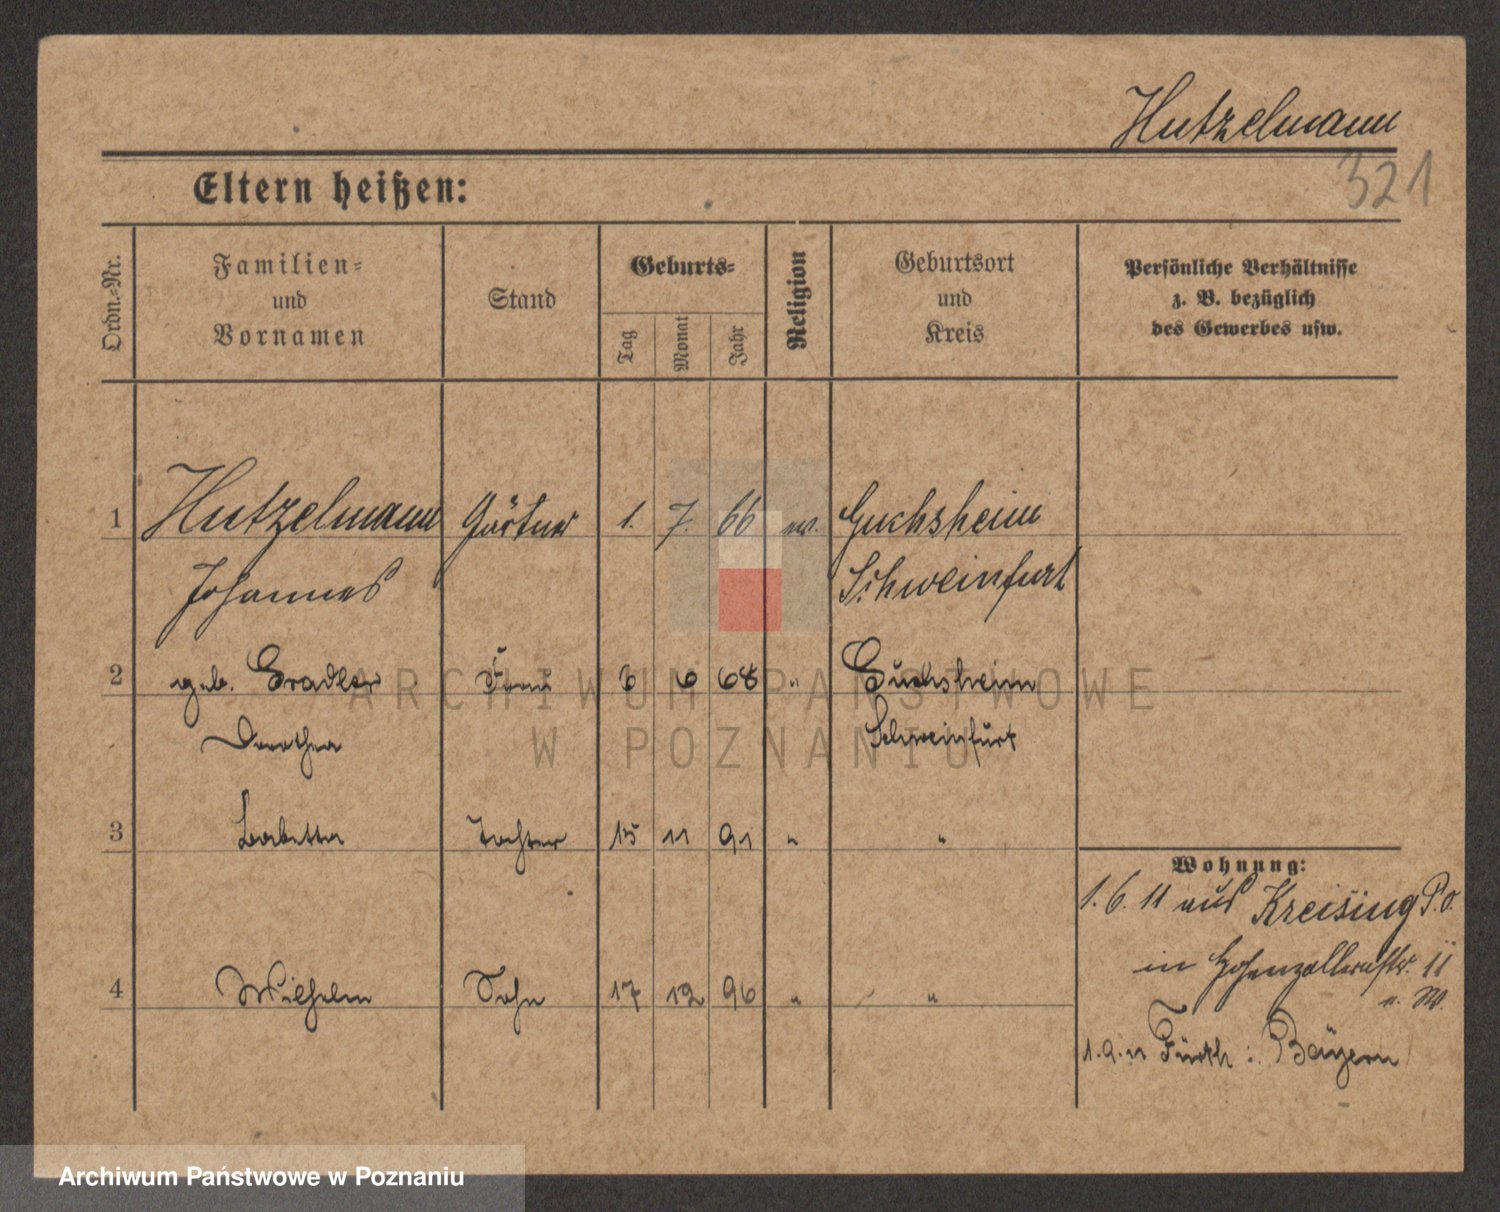 Hutzelmann
321
Eltern heißen:
Ordn.-Nr.
Familien-
und
Vornamen
Stand
Geburts-
Tag
Monat
Jahr
Religion
Geburtsort
und
Kreis
Persönliche Verhältnisse
z. B. bezüglich
des Gewerbes usw.
1 Hutzelmann Gärtner 1. 7. 66 ev. Guchsheim
Johannes Schweinfurt
2 geb. Gradler Frau 6 6 68 " Guchsheim
Dorothea Schweinfurt
3 Babetta Tochter 15 11 91 " "
Wohnung:
1. 6. 11 aus Kreising P. O.
in Hohenzollernstr. 11
4 Wilhelm Sohn 17 12 96 " "
Fürth i. Bayern
ARCHIWUM PAŃSTWOWE
W POZNANIU
Archiwum Państwowe w Poznaniu